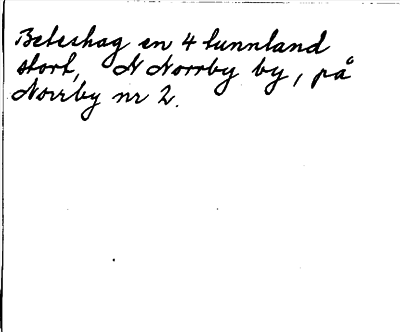 Beteshag en 4 tunnland
stort, N Norrby by, på
Norrby nr 2.